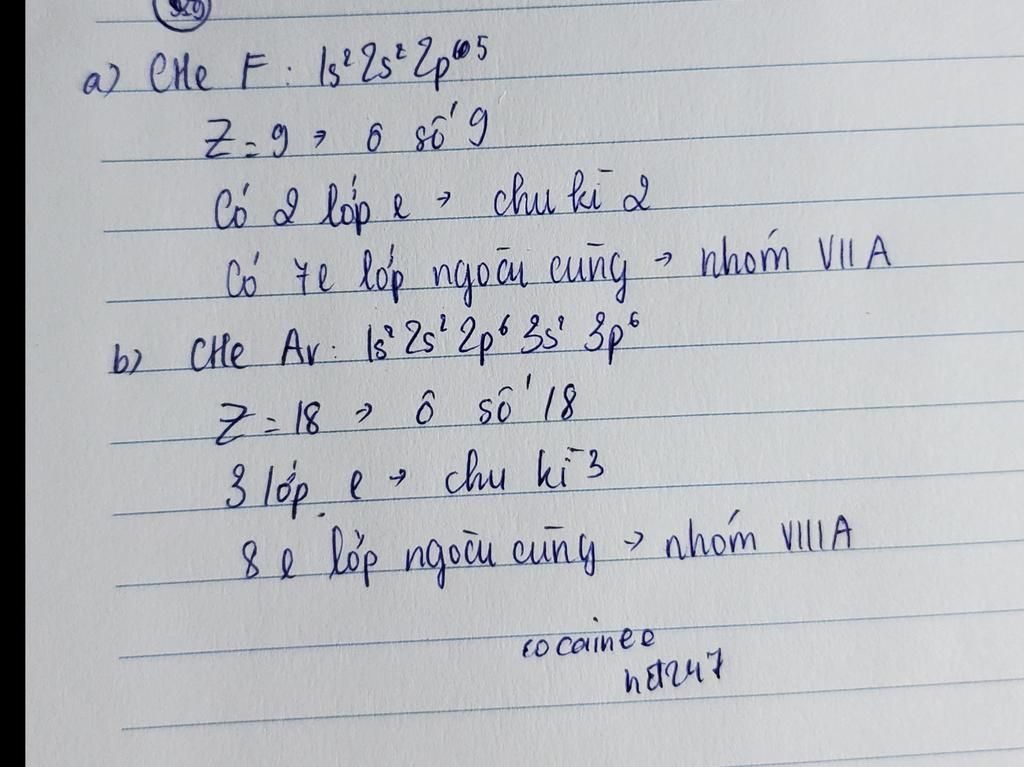 a) CHe F: 1s² 2s² 2p⁵
Z = 9 → ô số 9
Có 2 lớp e → chu kì 2
Có 7e lớp ngoài cùng → nhóm VIIA
b) CHe Ar: 1s² 2s² 2p⁶ 3s² 3p⁶
Z = 18 → ô số 18
3 lớp e → chu kì 3
8 e lớp ngoài cùng → nhóm VIIIA
cocainee
h[?]247